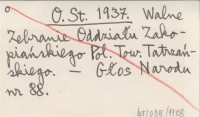 O. St. 1937. Walne
Zebranie Oddziału Zako-
piańskiego Pol. Tow. Tatrzań-
skiego. — Głos Narodu
nr 88.